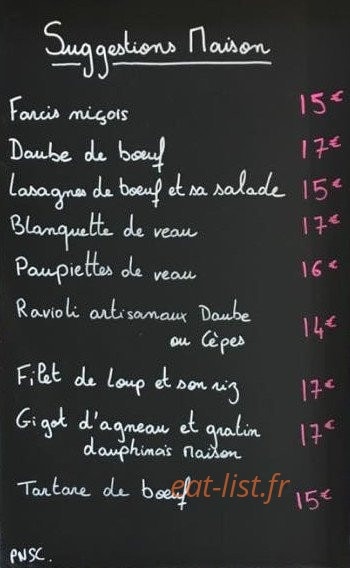 Suggestions Maison
Farcis niçois 15€
Daube de boeuf 17€
Lasagnes de boeuf et sa salade 15€
Blanquette de veau 17€
Paupiettes de veau 16€
Ravioli artisanaux Daube
ou Cèpes 14€
Filet de loup et son riz 17€
Gigot d'agneau et gratin 17€
dauphinois Maison
Tartare de boeuf 15€
eat-list.fr
PNSC.